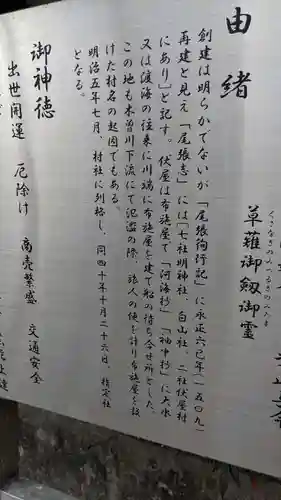 草薙御剱御霊
くさなぎのみつるぎのみたま
由緒
創建は明らかでないが「尾張徇行記」に永正六己年(一五〇九)
再建と見え「尾張志」には「七社明神社、白山社、二社伏屋村
にあり」と記す。伏屋は布施屋で「河海抄」「袖中抄」に大水
又は渡海の往来に川端に布施屋を建て船の待ち合せ所とした。
この地も木曽川下流にて氾濫の際、旅人の便を計り布施屋を設
けた村名の起因でもある。
明治五年七月、村社に列格し、同四十年十月二十六日、指定社
となる。
御神徳
出世開運 厄除け 商売繁盛 交通安全